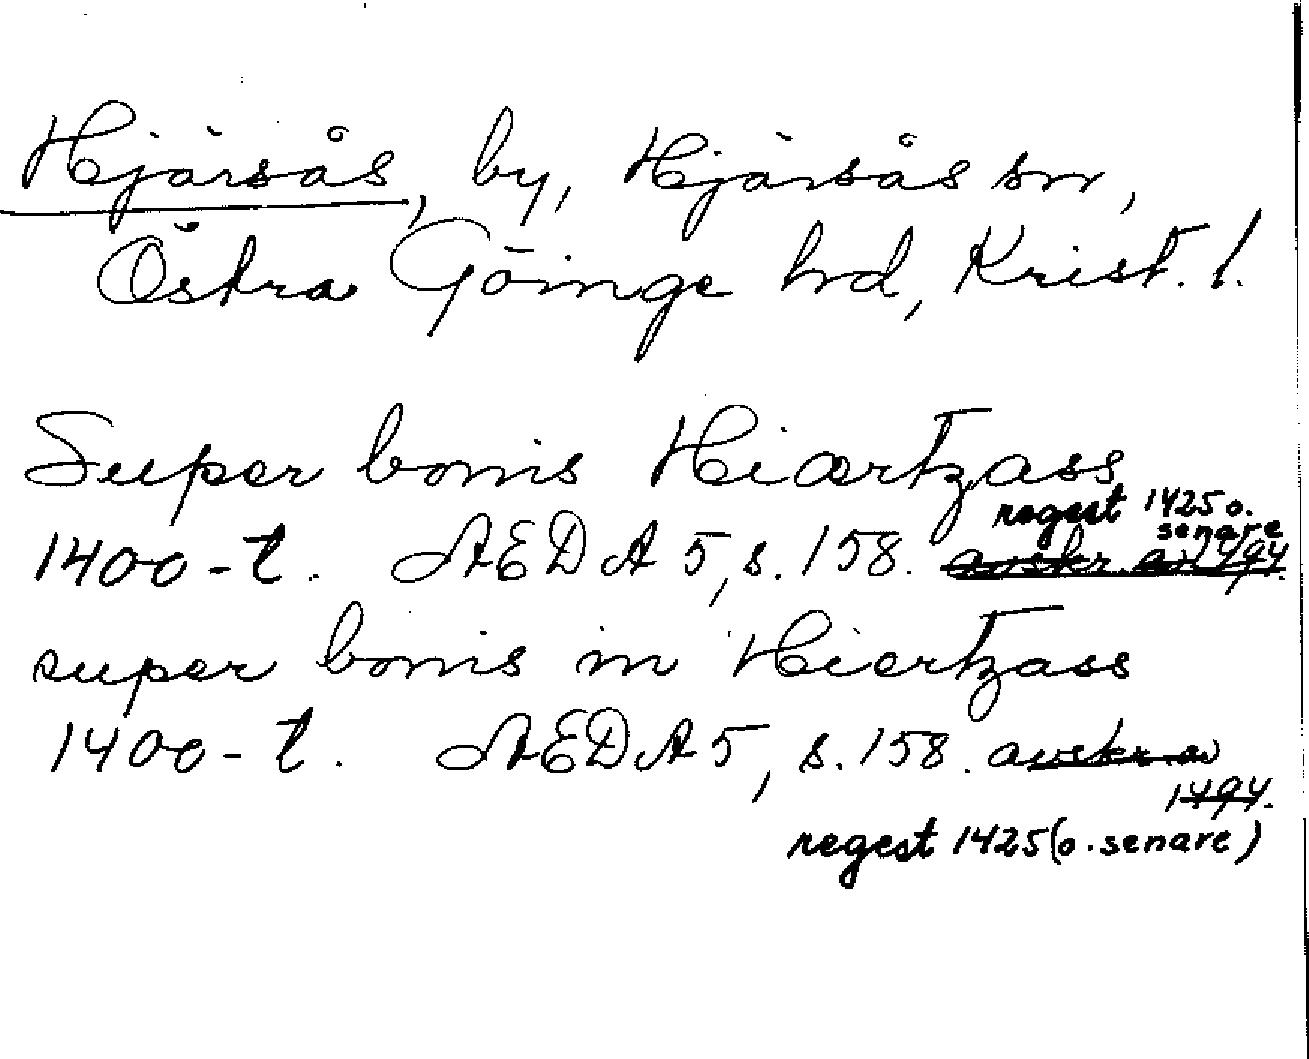 Hjärsås, by, Hjärsås sn,
Östra Göinge hd, Krist. l.
Super bonis Hiærtzass
regest 1425 o.
senare
1400-t. AEDA 5, s. 158. avskr. av 1494.
super bonis in Hiertzass
1400-t. AEDA 5, s. 158. avskr. av
1494.
regest 1425 (o. senare)